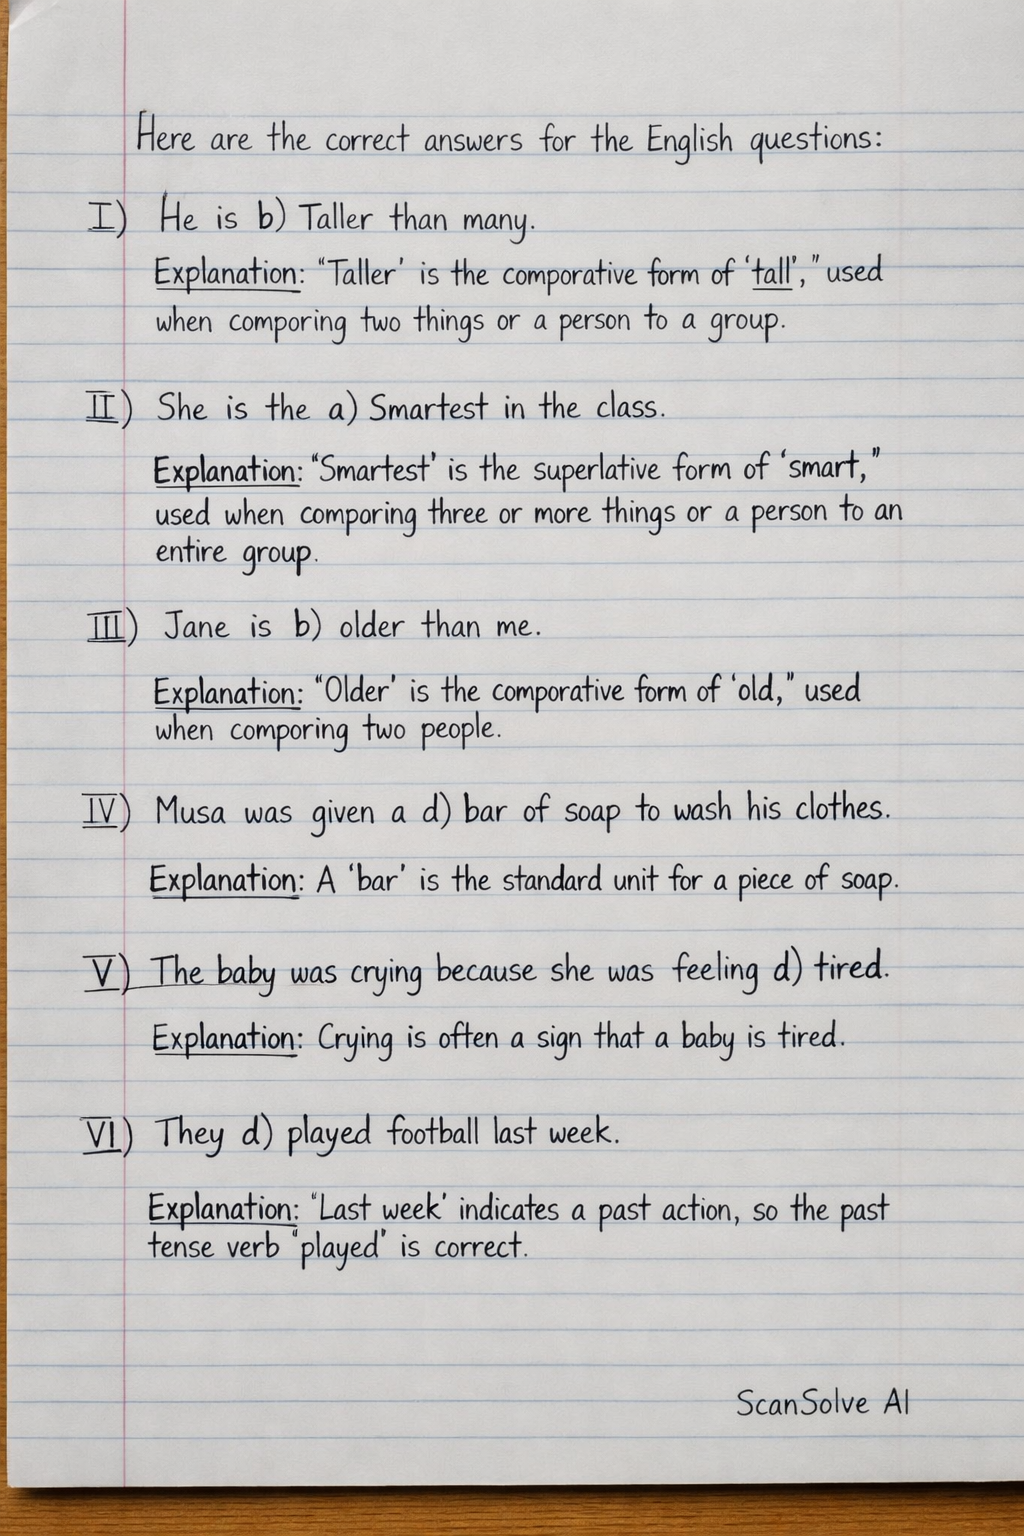 Here are the correct answers for the English questions:
I) He is b) Taller than many.
Explanation: "Taller' is the comporative form of 'tall'," used
when comporing two things or a person to a group.
II) She is the a) Smartest in the class.
Explanation: "Smartest' is the superlative form of 'smart,"
used when comporing three or more things or a person to an
entire group.
III) Jane is b) older than me.
Explanation: "Older' is the comporative form of 'old," used
when comporing two people.
IV) Musa was given a d) bar of soap to wash his clothes.
Explanation: A 'bar' is the standard unit for a piece of soap.
V) The baby was crying because she was feeling d) tired.
Explanation: Crying is often a sign that a baby is tired.
VI) They d) played football last week.
Explanation: "Last week' indicates a past action, so the past
tense verb "played" is correct.
ScanSolve AI